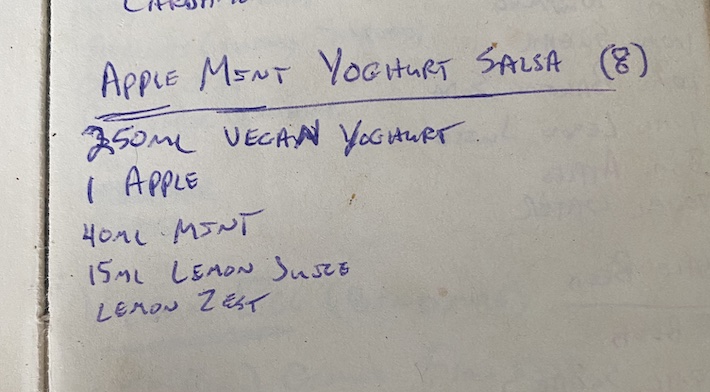 CARDAMO
APPLE MINT YOGHURT SALSA (8)
250ML VEGAN YOGHURT
1 APPLE
40ML MINT
15ML LEMON JUICE
LEMON ZEST